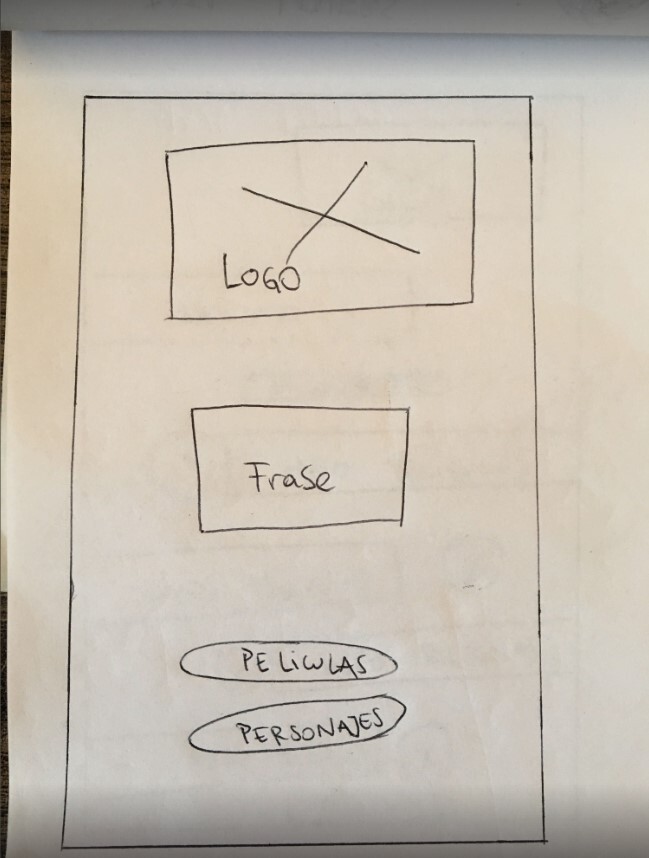 LOGO
Frase
PELICULAS
PERSONAJES